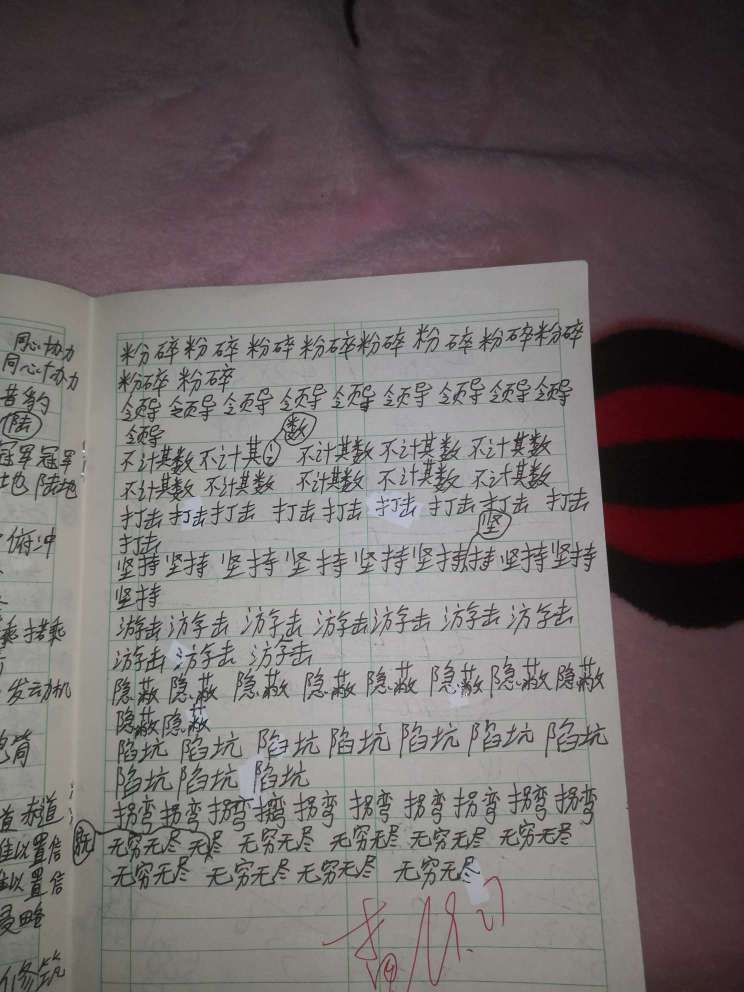 同心协力
同心协力
昔豹
陆
冠军冠军
地 陆地
俯冲
乘 搭乘
发动机
筒
赤道
难以置信
难以置信
侵略
修筑
粉碎 粉碎 粉碎 粉碎 粉碎 粉碎 粉碎 粉碎
粉碎 粉碎
领导 领导 领导 领导 领导 领导 领导 领导 领导
领导
数
不计其数 不计其 不计其数 不计其数 不计其数
不计其数 不计其数 不计其数 不计其数 不计其数
打击 打击 打击 打击 打击 打击 打击 打击 打击
打击
坚
坚持 坚持 坚持 坚持 坚持 坚持 持 坚持 坚持
坚持
游击 游击 游击 游击 游击 游击 游击
游击 游击 游击
隐蔽 隐蔽 隐蔽 隐蔽 隐蔽 隐蔽 隐蔽 隐蔽
隐蔽 隐蔽
陷坑 陷坑 陷坑 陷坑 陷坑 陷坑 陷坑
陷坑 陷坑 陷坑
拐弯 拐弯 拐弯 拐弯 拐弯 拐弯 拐弯 拐弯 拐弯
无穷无尽 无尽 无穷无尽 无穷无尽 无穷无尽 无穷无尽
无穷无尽 无穷无尽 无穷无尽 无穷无尽